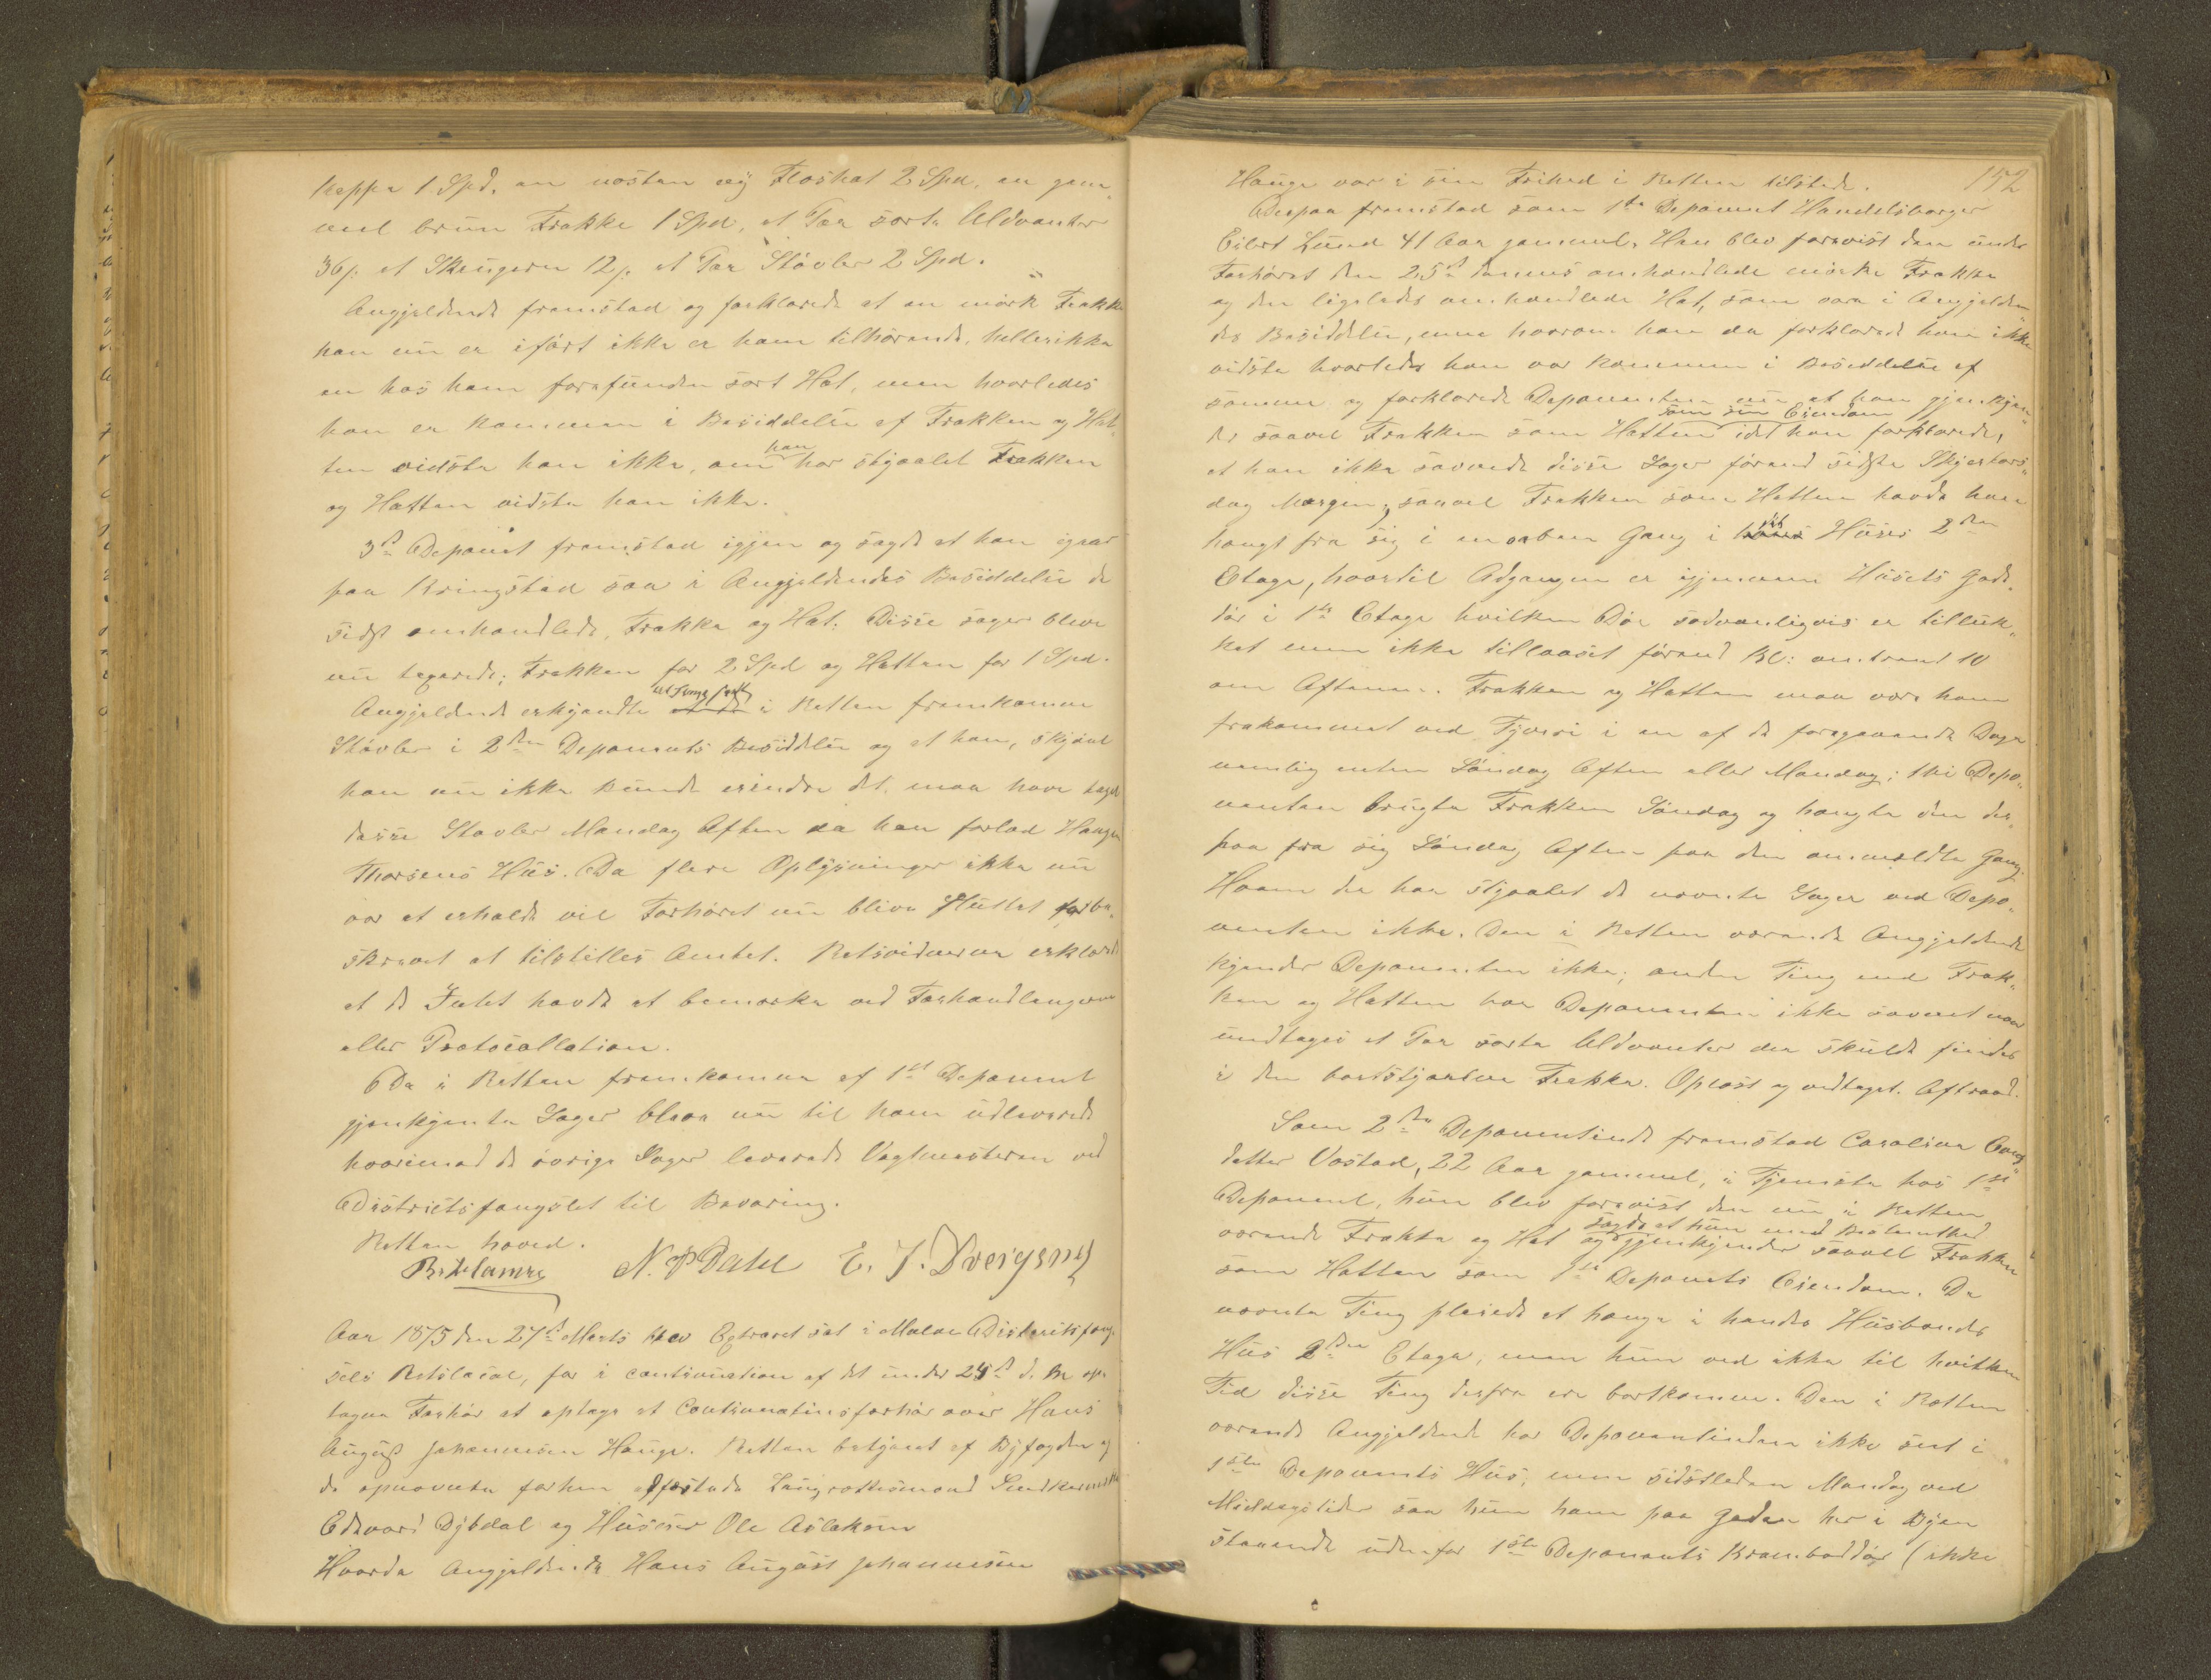 kappe 1 Spd. en næsten ny Floshat 2 Spd. en gam
mel brun Frakke 1 Spd, et Par sorte Uldvanter
36 s. et Skrugeren 12 s. et Par Støvler 2 Spd.
Angjeldende fremstod og forklarede at en mørk Frakke
han nu er iført ikke er ham tilhørende, heller ikke
en hos ham forefunden sort Hat, men hvorledes
han er kommen i Besiddelse af Frakken og Hat-
ten vidste han ikke, om han har stjaalet Frakken
og Hatten vidste han ikke.
3d Deponent fremstod igjen og sagde at han igaar
paa Kringstad saa i Angjeldendes Besiddelse de
sidst omhandlede, Frakke og Hat. Disse sager bleve
nu taxerede; Frakken for 2 Spd og Hatten for 1 Spd.
Angjeldende erkjendte i Retten fremkomne
Støvler i 2den Deponents Besiddelse og at han, skjønt
han nu ikke kunde erindre det, maa have taget
disse Støvler Mandag Aften da han forlod Hauge
Thorsens Hus. Da flere Oplysninger ikke nu
var at erholde vil Forhøret nu blive sluttet for be-
skrevet at tilstilles Amtet. Retsvidnerne erklærede
at de Intet havde at bemærke ved Forhandlingerne
eller Protocollation.
De i Retten fremkomne af 1st Deponent
gjenkjente Sager bleve nu til ham udleverede
hvorimod de øvrige Sager leverede Vagtmesteren ved
Districtsfængslet til Bevaring.
Retten hævet.
N. P Dahl E. J. Dvergsnes
Aar 1875 den 27d Marts blev Extraret sat i Molde Districtsfæng-
sels Retslocal, for i continuation af det under 25d d. M op-
tagne Forhør at optage et Continuationsforhør over Hans
August Johannesen Hauge. Retten betjent af Byfogden og
de opnævnte forhen edfæstede Laugrettesmænd Snedkermester
Edevard Dybdal og Huseier Ole Aslaksen
Hvorda Angjeldende Hans August Johannesen
152
Hauge var i sin Frihed i Retten tilstede.
Derpaa fremstod som 1ste Deponent Handelsborger
Eilert Lund 41 Aar gammel. Han blev forevist den under
Forhøret den 25d dennes omhandlede mørke Frakke
og den ligeledes omhandlede Hat, som vare i Angjelden-
des Besiddelse, men hvorom han da forklarede han ikke
vidste hvorledes han var kommen i Besiddelse af
samme og forklarede Deponenten nu at han gjenkjen-
der saavel Frakken som Hatten som sin Eiendom idet han forklarede,
at han ikke savnede disse Sager førend sidste Skjertors-
dag Morgen; saavel Frakken som Hatten havde han
hængt fra sig i en aaben Gang i sit Huses 2den
Etage, hvortil Adgangen er igjennem Husets Gade-
dør i 1ste Etage hvilken Dør sædvanligvis er tilluk-
ket men ikke tillaaset førend Kl: omtrent 10
om Aftenen. Frakken og Hatten maa være ham
frakommet ved Tyveri i en af de foregaaende Dage
nemlig enten Søndag Aften eller Mandag; thi Depo-
nenten brugte Frakken Søndag og hængte den der-
paa fra sig Søndag Aften paa den anmeldte Gang.
Hvem der har stjaalet de nævnte Sager ved Depo-
nenten ikke. Den i Retten værende Angjeldende
kjender Deponenten ikke; anden Ting end Frak-
ken og Hatten har Deponenten ikke savnet naar
undtages et Par sorte Uldvanter der skulde findes
i den bortstjaalne Frakke. Oplæst og vedtaget. Aftraad.
Som 2den Deponentinde fremstod Caroline
datter Vestad, 22 Aar gammel, i Tjeneste hos 1ste
Deponent, hun blev forevist den nu i Retten
værende Frakke og Hat og sagde at hun med Bestemthed gjenkjender saavel Frakken
som Hatten som 1ste Deponents Eiendom. De
nævnte Ting pleiede at hænge i hendes Husbonds
Hus 2den Etage, men hun ved ikke til hvilken
Tid disse Ting derfra ere bortkomne. Den i Retten
værende Angjeldende har Deponentinden ikke seet i
1ste Deponents Hus, men sidstleden Mandag ved
Middagstider saa hun ham paa Gaden her i Byen
staaende udenfor 1ste Deponents Kramboddør (ikke